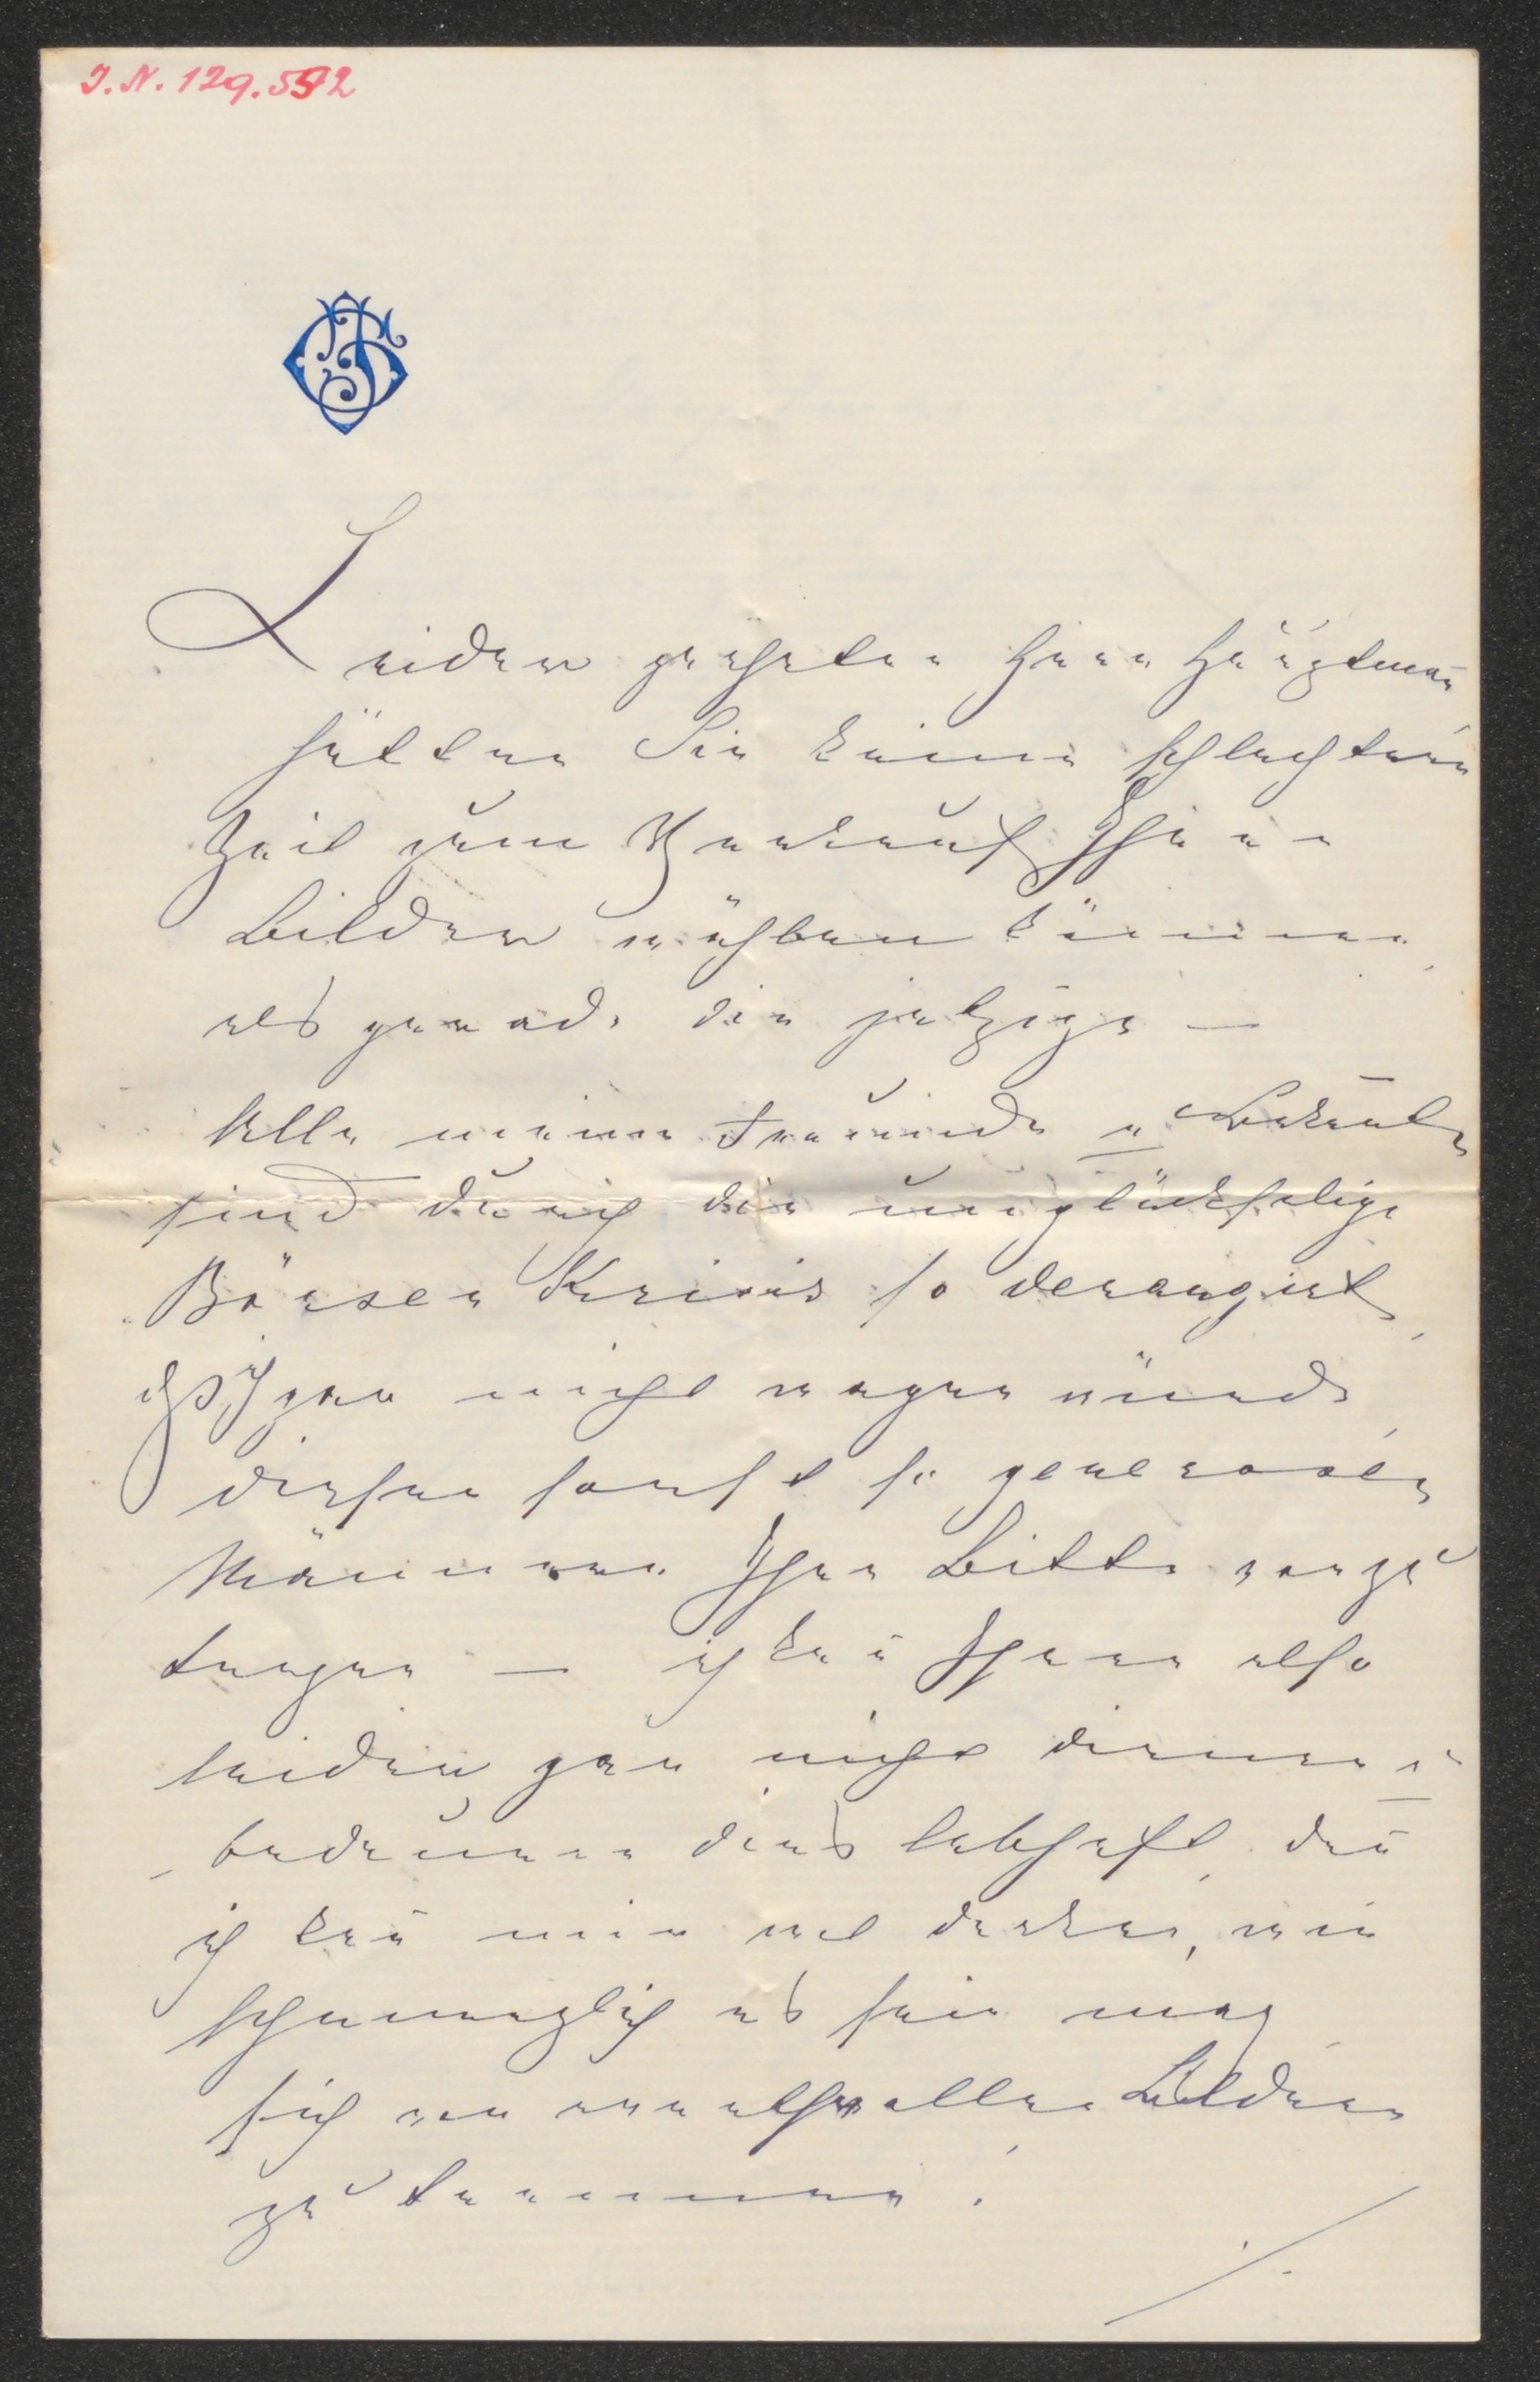 I.N. 129.592
Leider geehrter Herr Hauptmañ
hätten Sie keine schlechtere
Zeit zum Verkauf Ihrer
Bilder wählen können
als gerade die jetzige —
Alle meine Freunde u Bekañte
sind durch die unglückselige
Börsen Krisis so derangirt,
dß ich gar nicht wagen würde
diesen sonst so generosen
Männern Ihre Bitte vorzu
tragen — ich kañ Ihnen also
leider gar nicht dienen u
bedauere dies lebhaft, deñ
ich kañ mir denken, wie
schmerzlich es sein mag
sich von werthvollen Bildern
zu trennen!
./.